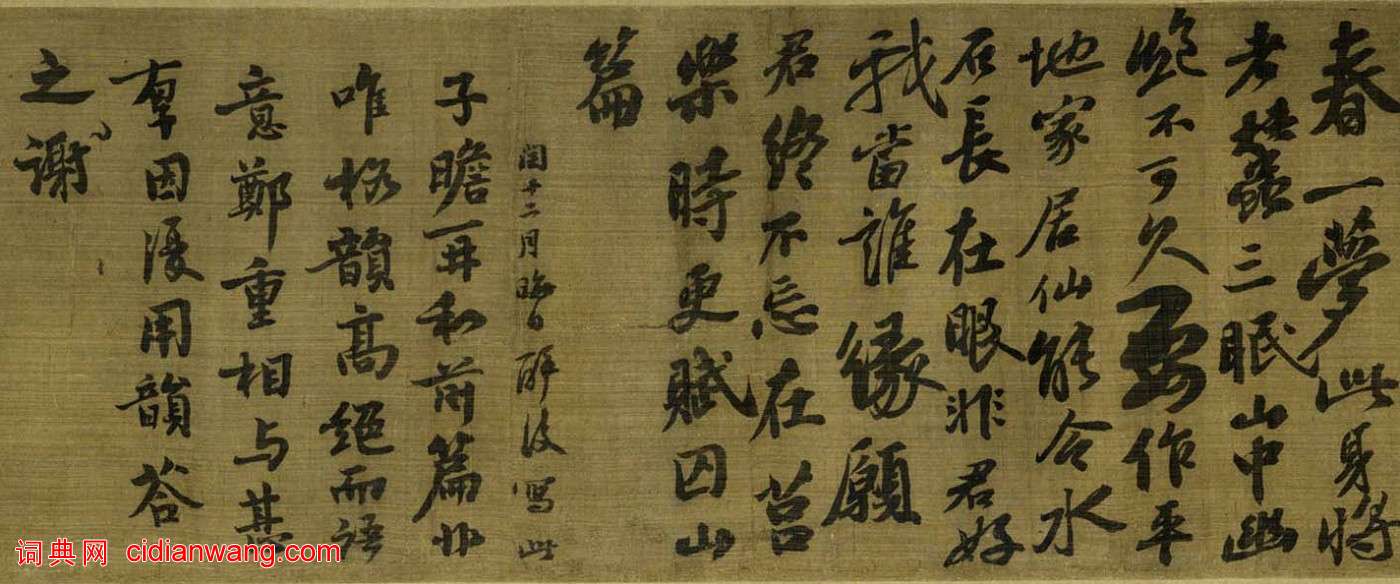 春一夢此身將
老蠶三眠山中幽
絕不可久要作平
地家居仙能令水
石長在眼非君好
我當誰緣願
君終不忘在莒
樂時更賦囚山
篇
閏十二月晦日醉後寫此
子瞻再和前篇非
唯格韻高絕而語
意鄭重相與甚
厚因復用韻答
之謝
词典网 cidianwang.com